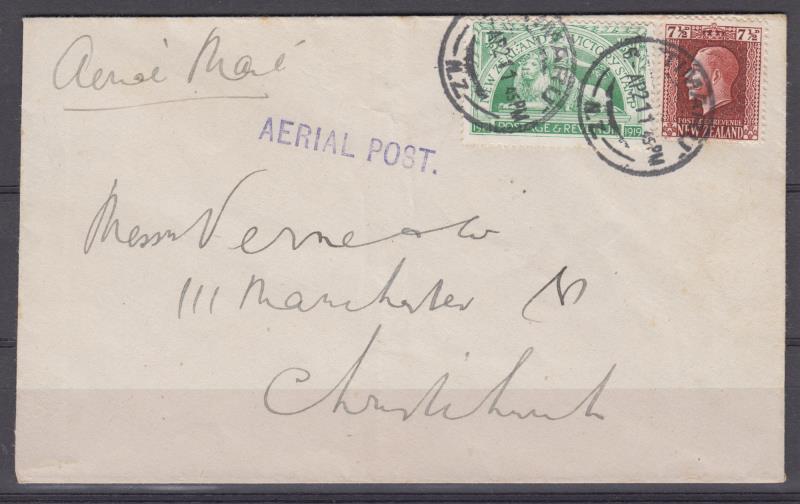 Aerial Mail
AERIAL POST.
NEW ZEALAND VICTORY STAMP
POSTAGE & REVENUE 1919
7½ 7½
POSTAGE & REVENUE
NEW ZEALAND
AP 21 1 45 PM
N.Z.
AP 21 1 45 PM
N.Z.
Messrs Verne & Co
111 Manchester St
Christchurch